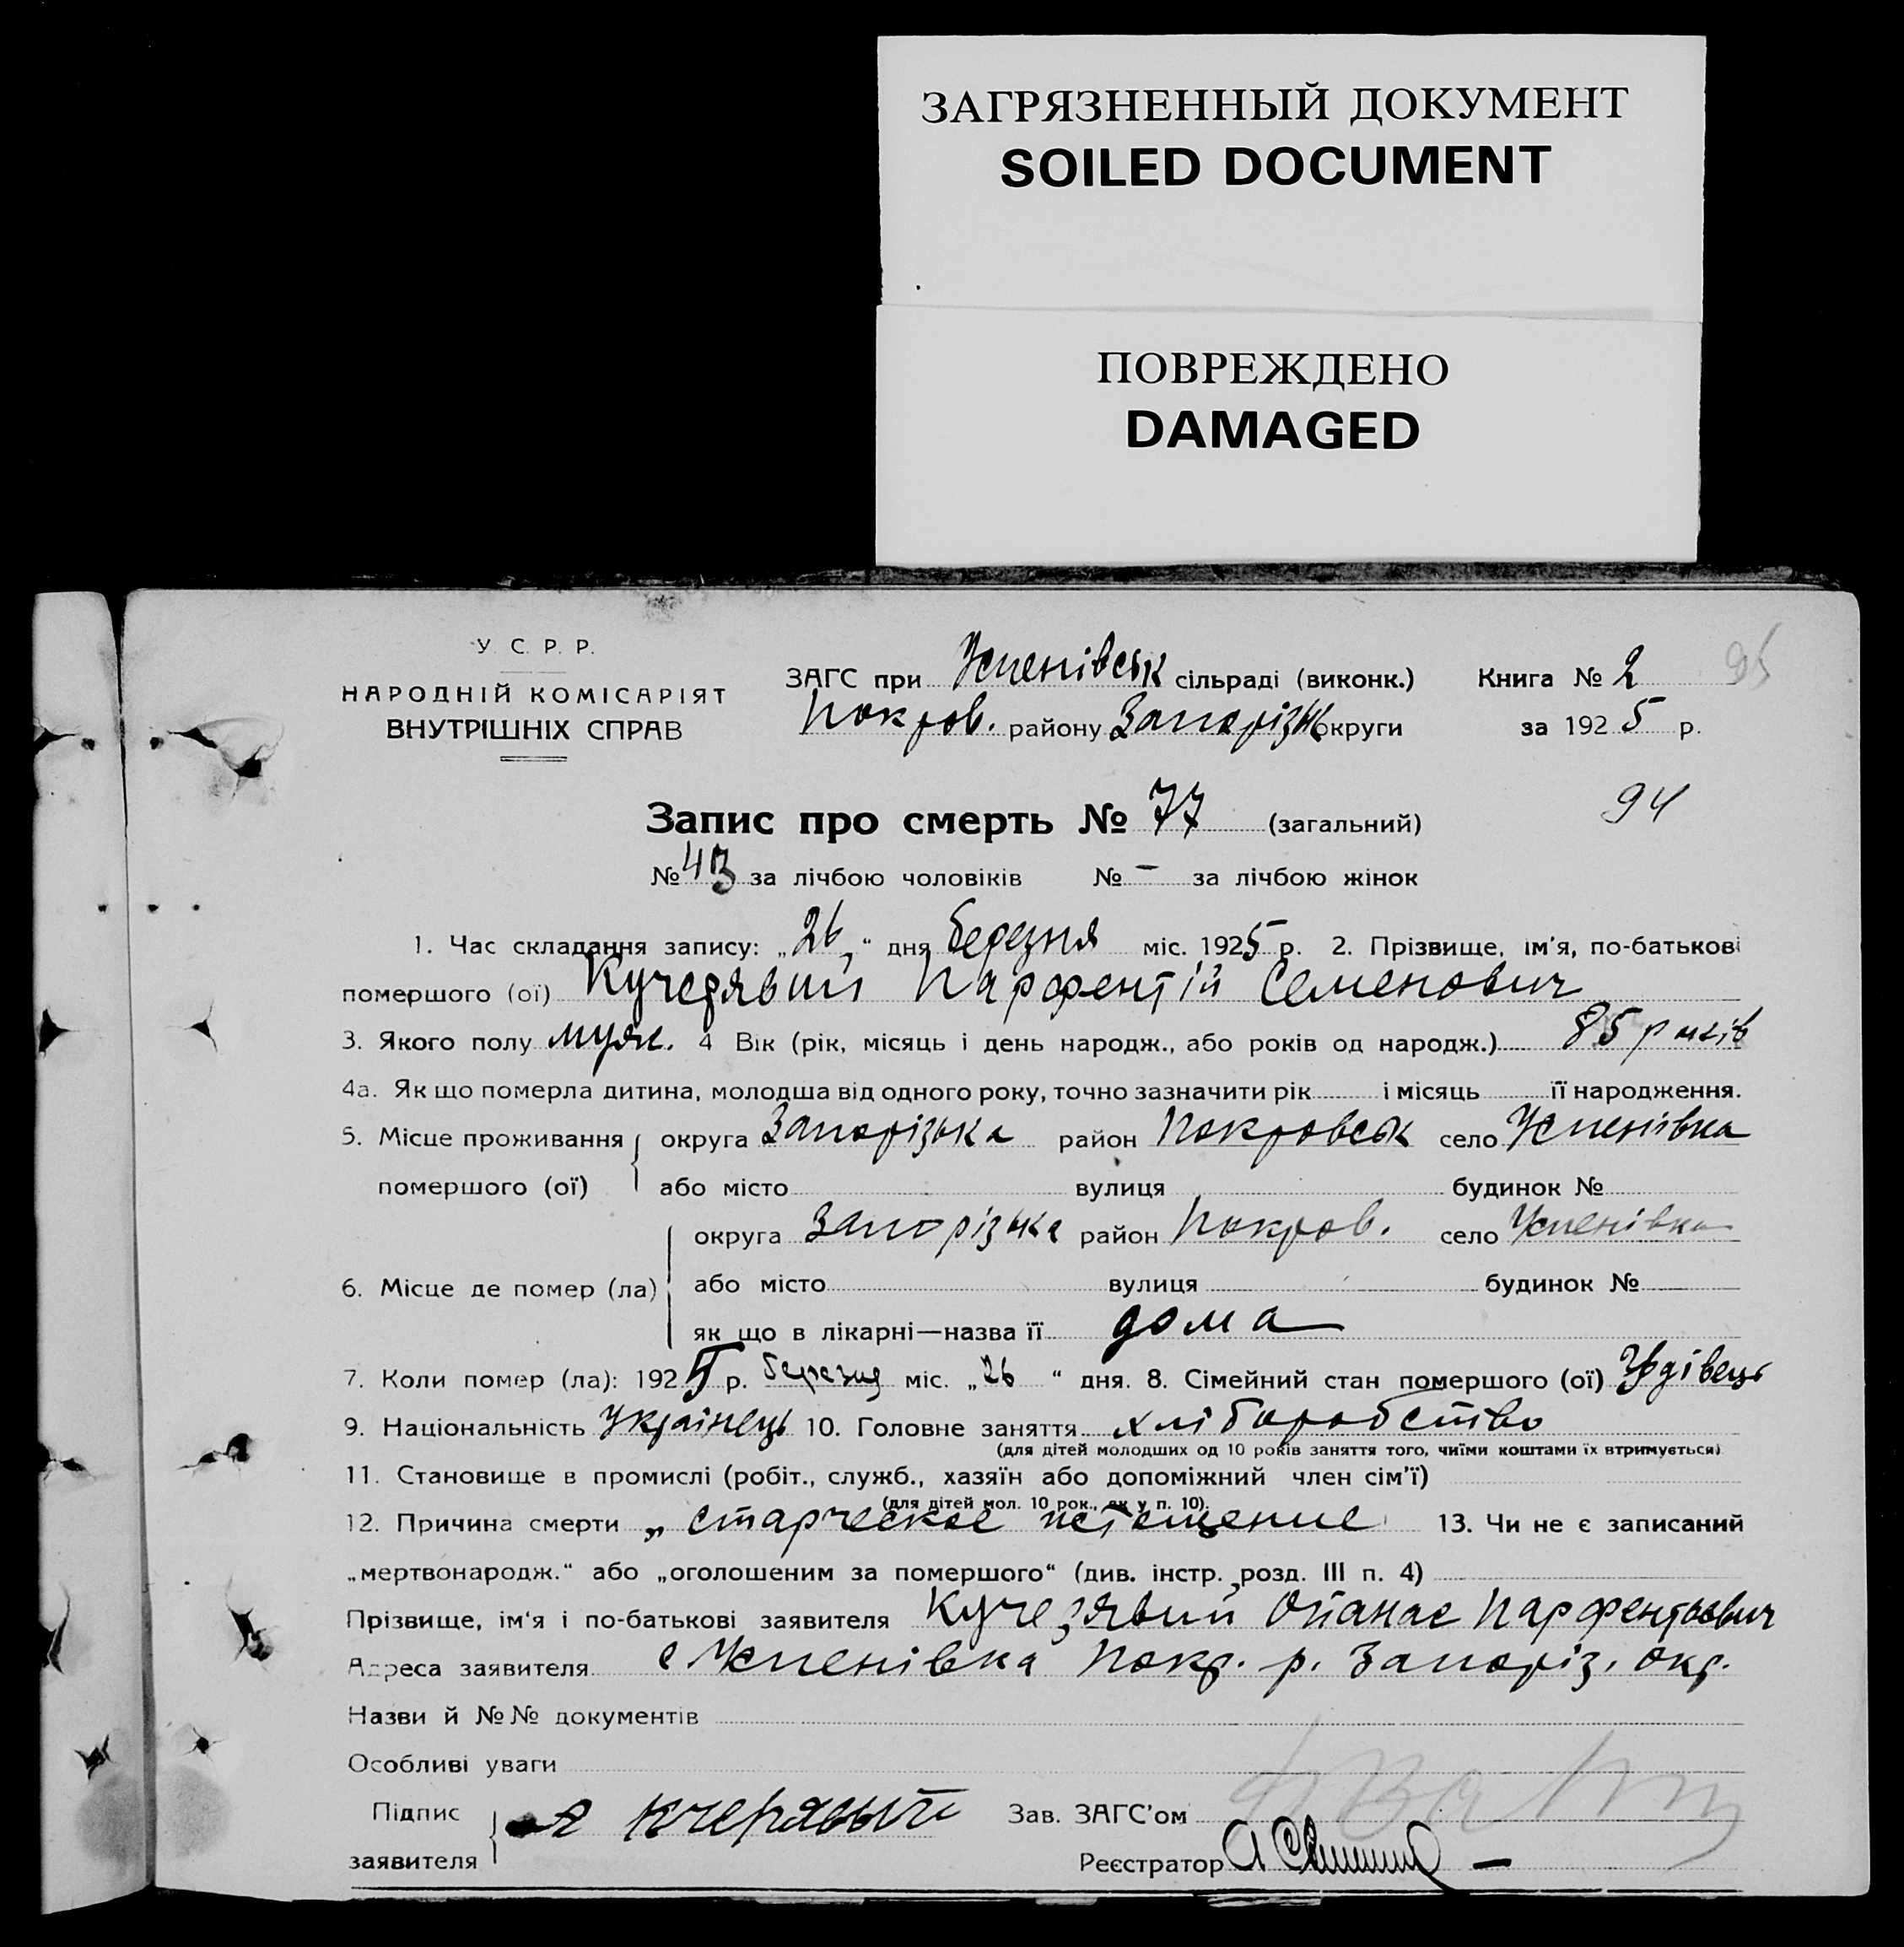 ЗАГРЯЗНЕННЫЙ ДОКУМЕНТ
SOILED DOCUMENT
ПОВРЕЖДЕНО
DAMAGED
У. С. Р. Р.
НАРОДНІЙ КОМІСАРІЯТ
ВНУТРІШНІХ СПРАВ
ЗАГС при Успенівськ сільраді (виконк.)
Покров. району Запорізьк округи
Книга № 2 95
за 1925 р.
94
Запис про смерть № 77 (загальний)
№ 43 за лічбою чоловіків № – за лічбою жінок
1. Час складання запису: „26“ дня березня міс. 1925 р. 2. Прізвище, ім'я, по-батькові
помершого (ої) Кучерявий Парфентій Семенович
3. Якого полу муж. 4 Вік (рік, місяць і день народж., або років од народж.) 85 років
4а. Як що померла дитина, молодша від одного року, точно зазначити рік і місяць її народження.
5. Місце проживання округа Запорізька район Покровськ село Успенівка
помершого (ої) або місто вулиця будинок №
округа Запорізька район Покров. село Успенівка
6. Місце де помер (ла) або місто вулиця будинок №
як що в лікарні—назва її дома
7. Коли помер (ла): 1925 р. березня міс. „26“ дня. 8. Сімейний стан помершого (ої) Удівець
9. Національність Українець 10. Головне заняття хліборобство
(для дітей молодших од 10 років заняття того, чиїми коштами їх втримується)
11. Становище в промислі (робіт., служб., хазяїн або допоміжний член сім'ї)
(для дітей мол. 10 рок., як у п. 10).
12. Причина смерти „ старческое истощение 13. Чи не є записаний
„мертвонародж.“ або „оголошеним за помершого“ (див. інстр. розд. III п. 4)
Прізвище, ім'я і по-батькові заявителя Кучерявий Опанас Парфентьович
Адреса заявителя с Успенівка Покр. р. Запоріз. окр.
Назви й №№ документів
Особливі уваги
Підпис
заявителя
Кчерявый
Зав. ЗАГС'ом
Реєстратор